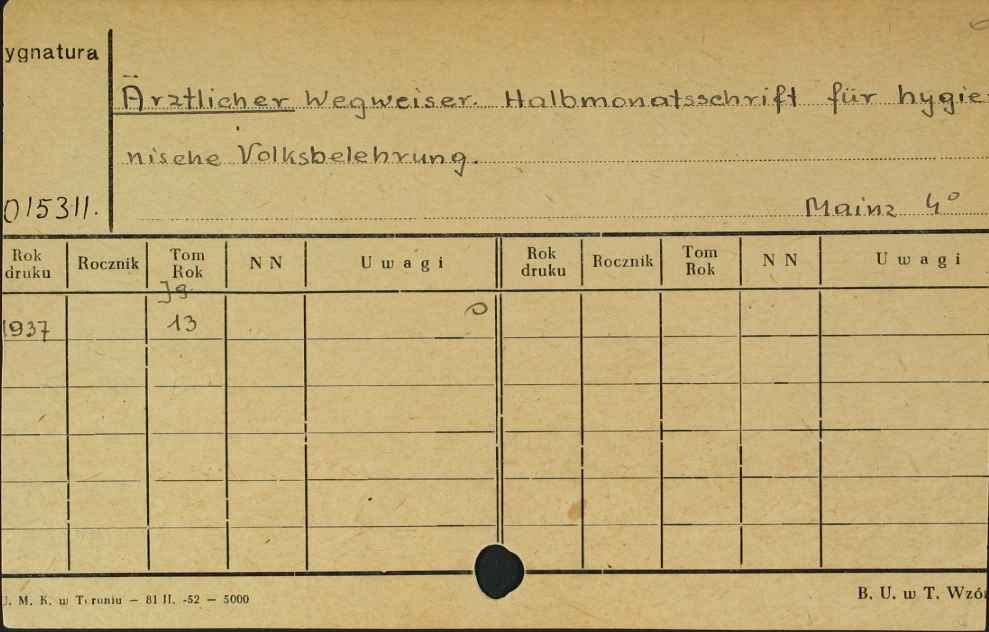 ygnatura
Ärztlicher Wegweiser. Halbmonatsschrift für hygie-
nische Volksbelehrung.
015311.
Mainz 4°
Rok druku Rocznik Tom Rok N N Uwagi Rok druku Rocznik Tom Rok N N Uwagi
Jg.
1937 13
J. M. K. w Toruniu — 81 II. -52 — 5000
B. U. w T. Wzór